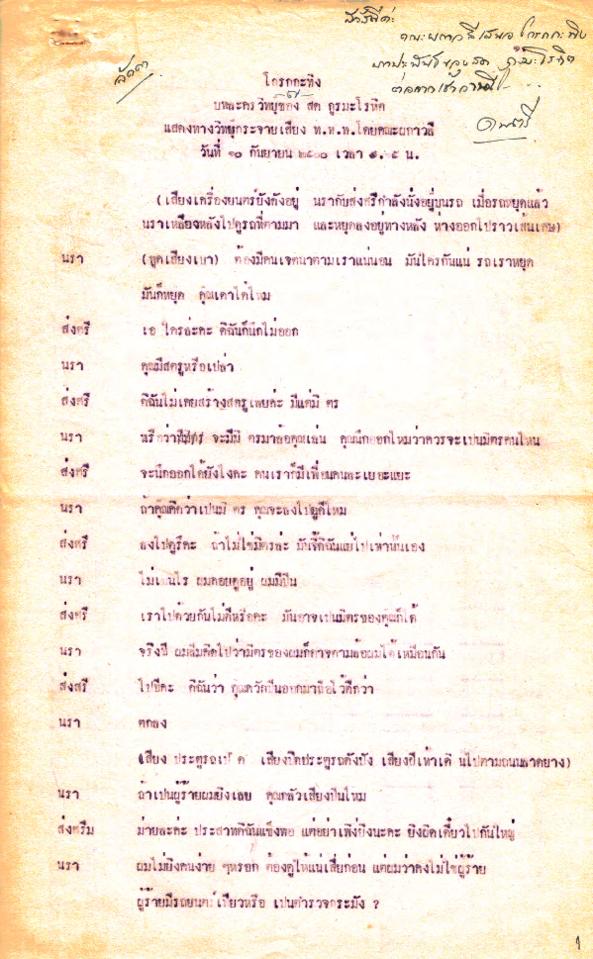 สวัสดีค่ะ
คณะผกาวลีเสนอ โกรกกะทิง
บทประพันธ์ของ สด กูรมะโรหิต
ลัดดา
โกรกกะทิง
บทละครวิทยุของ สด กูรมะโรหิต
แสดงทางวิทยุกระจายเสียง ท.ท.ท.โดยคณะผกาวลี
วันที่ ๑๐ กันยายน ๒๕๐๐ เวลา
(เสียงเครื่องยนตร์ยังดังอยู่ นรากับส่งศรีกำลังนั่งอยู่บนรถ เมื่อรถหยุดแล้ว
นราเหลือวหลังไปดูรถที่ตามมา และหยุดลงอยู่ทางหลัง ห่างออกไปราวเส้นเศษ)
นรา (พูดเสียงเบา) ต้องมีคนเจตนาตามเราแน่นอน มันใครกันแน่ รถเราหยุด
มันก็หยุด คุณเดาได้ไหม
ส่งศรี เอ ใครล่ะคะ ดิฉันก็นึกไม่ออก
นรา คุณมีสตรูหรือเปล่า
ส่งศรี ดิฉันไม่เคยสร้างสตรูเลยค่ะ มีแต่มิ ตร
นรา หรือว่า จะมีมิ ตรมาล้อคุณเล่น คุณนึกออกไหมว่าควรจะเปนมิตรคนไหน
ส่งศรี จะนึกออกได้ยังไงคะ คนเราก็มีเพื่อนคนละเยอะแยะ
นรา ถ้าคุณคิดว่าเปนมิ ตร คุณจะลงไปดูดีไหม
ส่งศรี ลงไปดูรึคะ ถ้าไม่ใช่มิตรล่ะ มันจี้ดิฉันแย่ไปเท่านั้นเอง
นรา ไม่เปนไร ผมคอยดูอยู่ ผมมีปืน
ส่งศรี เราไปด้วยกันไม่ดีหรือคะ มันอาจเปนมิตรของคุณก็ได้
นรา จริงซี ผมลืมคิดไปว่ามิตรของผมก็อาจตามล้อผมได้เหมือนกัน
ส่งสรี ไปซีคะ ดิฉันว่า คุณควักปืนออกมาถือไว้ดีกว่า
นรา ตกลง
(เสียง ประตูรถเปิ ด เสียงปิดประตูรถดังปัง เสียงฝีเท้าเดิ นไปตามถนนลาดยาง)
นรา ถ้าเปนผู้ร้ายผมยิงเลย คุณกลัวเสียงปืนไหม
ส่งศรีม ม่ายละค่ะ ประสาทดิฉันแข็งพอ แต่อย่าเพิ่งยิงนะคะ ยิงผิดเดี๋ยวไปกันใหญ่
นรา ผมไม่ยิงคนง่าย ๆหรอก ต้องดูให้แน่เสียก่อน แต่ผมว่าคงไม่ใช่ผู้ร้าย
ผู้ร้ายมีรถยนตร์เชียวหรือ เปนตำรวจกระมัง ?
๑